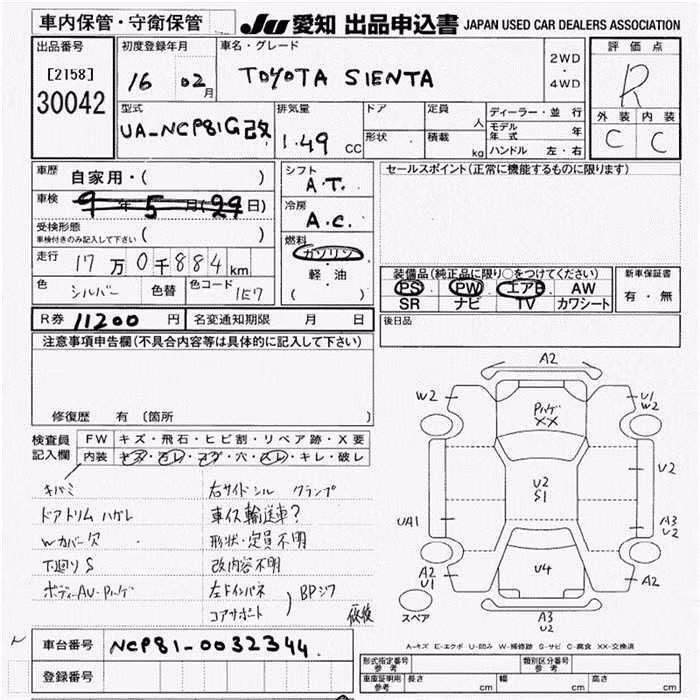 車内保管・守衛保管
JU 愛知 出品申込書 JAPAN USED CAR DEALERS ASSOCIATION
出品番号
[2158]
30042
初度登録年月
16 02月
車名・グレード
TOYOTA SIENTA
2WD
・
4WD
評価点
R
外装 内装
C C
型式
UA-NCP81G改
排気量
1.49 CC
ドア
形状
定員 人
積載 kg
ディーラー・並行
モデル年式 年
ハンドル 左・右
車歴 自家用・( )
車検 9年5月(29日)
受検形態
車検付きのみ記入して下さい ( )
走行 17万0千884km
色 シルバー 色替 色コード 1E7
シフト
A.T.
冷房
A.C.
燃料
ガソリン
・
軽・油
( )
セールスポイント(正常に機能するものに限ります)
装備品(純正品に限り○をつけてください)
PS PW エアB AW
SR ナビ TV カワシート
新車保証書
有・無
R券 11200円 名変通知期限 月 日
後日品
注意事項申告欄(不具合内容等は具体的に記入して下さい)
修復歴 有 〔箇所
検査員
記入欄
FW キズ・飛石・ヒビ割・リペア跡・X要
内装 キズ・ヨレ・コゲ・穴・スレ・キレ・破レ
キバミ
ドアトリムハガレ
Wカバー欠
下廻りS
ボディーAU・Pハゲ
右サイドシル クランプ
車イス輸送車?
形状・定員不明
改内容不明
左Fインパネ
コアサポート
BPジワ
修復
A2
W2
U1
W2
Pハゲ
XX
U2
S1
U2
UA1
A3
U2
U4
A2
U1
A2
スペア
A3
U2
A-キズ E-エクボ U-凹み W-補修跡 S-サビ C-腐食 XX-交換済
車台番号 NCP81-0032344
登録番号
形式指定番号
参考
類別区分番号
参考
車庫証明用
参考
長さ cm 幅 cm 高さ cm